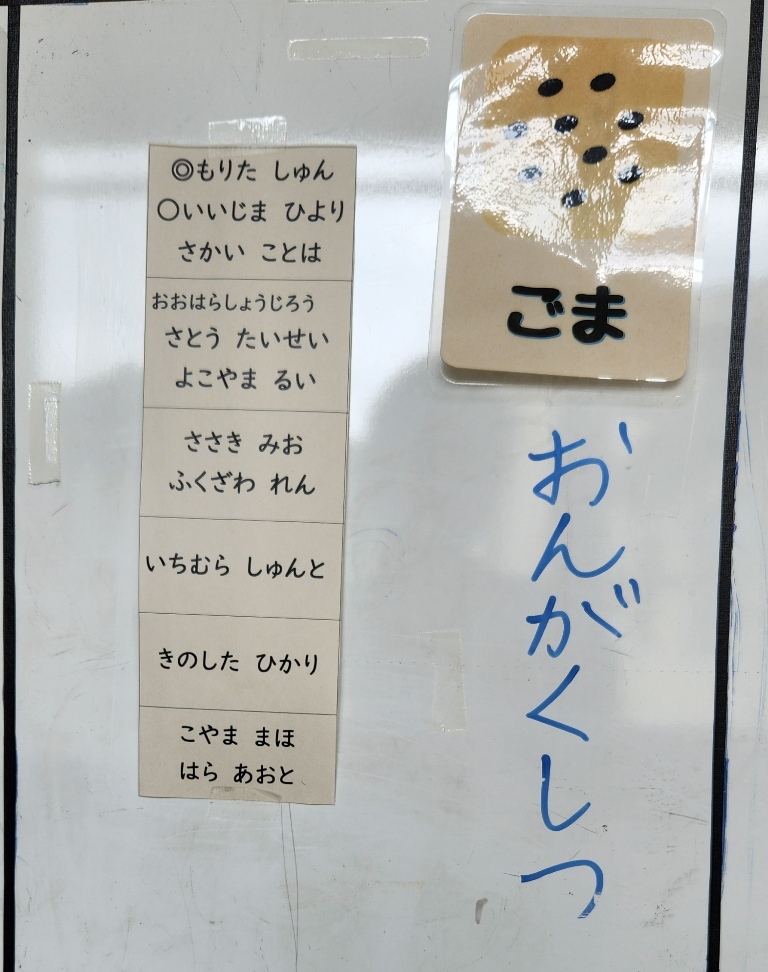 ごま
おんがくしつ
◎もりた しゅん
○いいじま ひより
さかい ことは
おおはらしょうじろう
さとう たいせい
よこやま るい
ささき みお
ふくざわ れん
いちむら しゅんと
きのした ひかり
こやま まほ
はら あおと